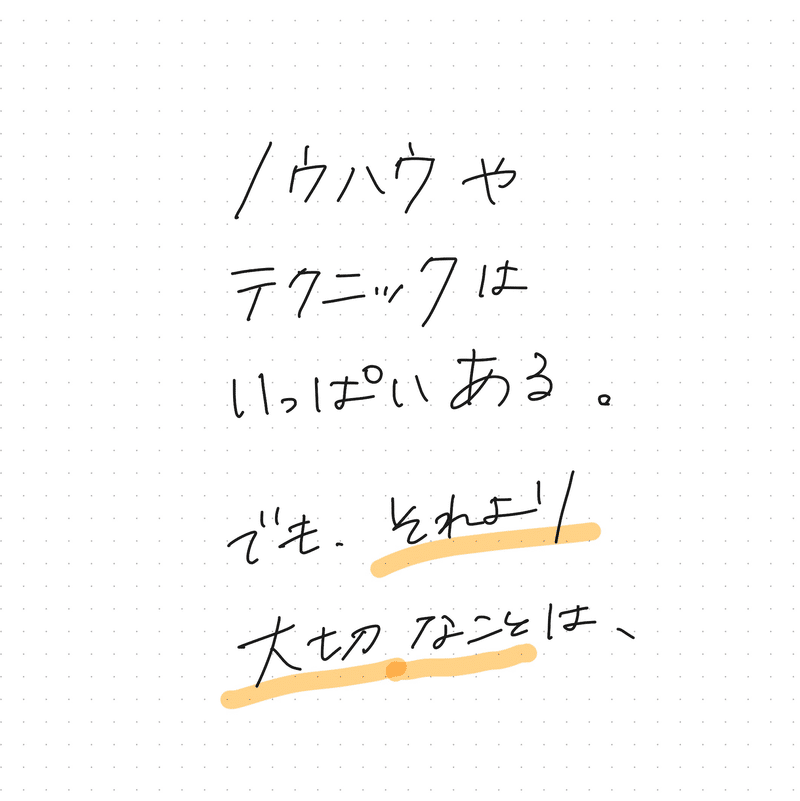 ノウハウや
テクニックは
いっぱいある。
でも、それより
大切なことは、